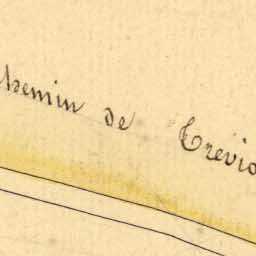 Chemin de Trevio